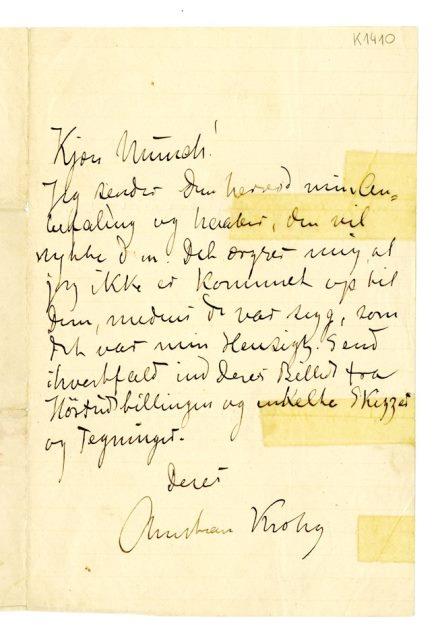 K1410
Kjære Munch!
Jeg sender Dem herved min An=
befaling og haaber, den vil
nytte Dem. Det ærgrer mig at
jeg ikke er kommet op til
Dem, medens De var syg, som
det var min Hensigt. Send
ihvertfald ind Deres Billed fra
Höstudstillingen og enkelte Skizzer
og Tegninger.
Deres
Christian Krohg